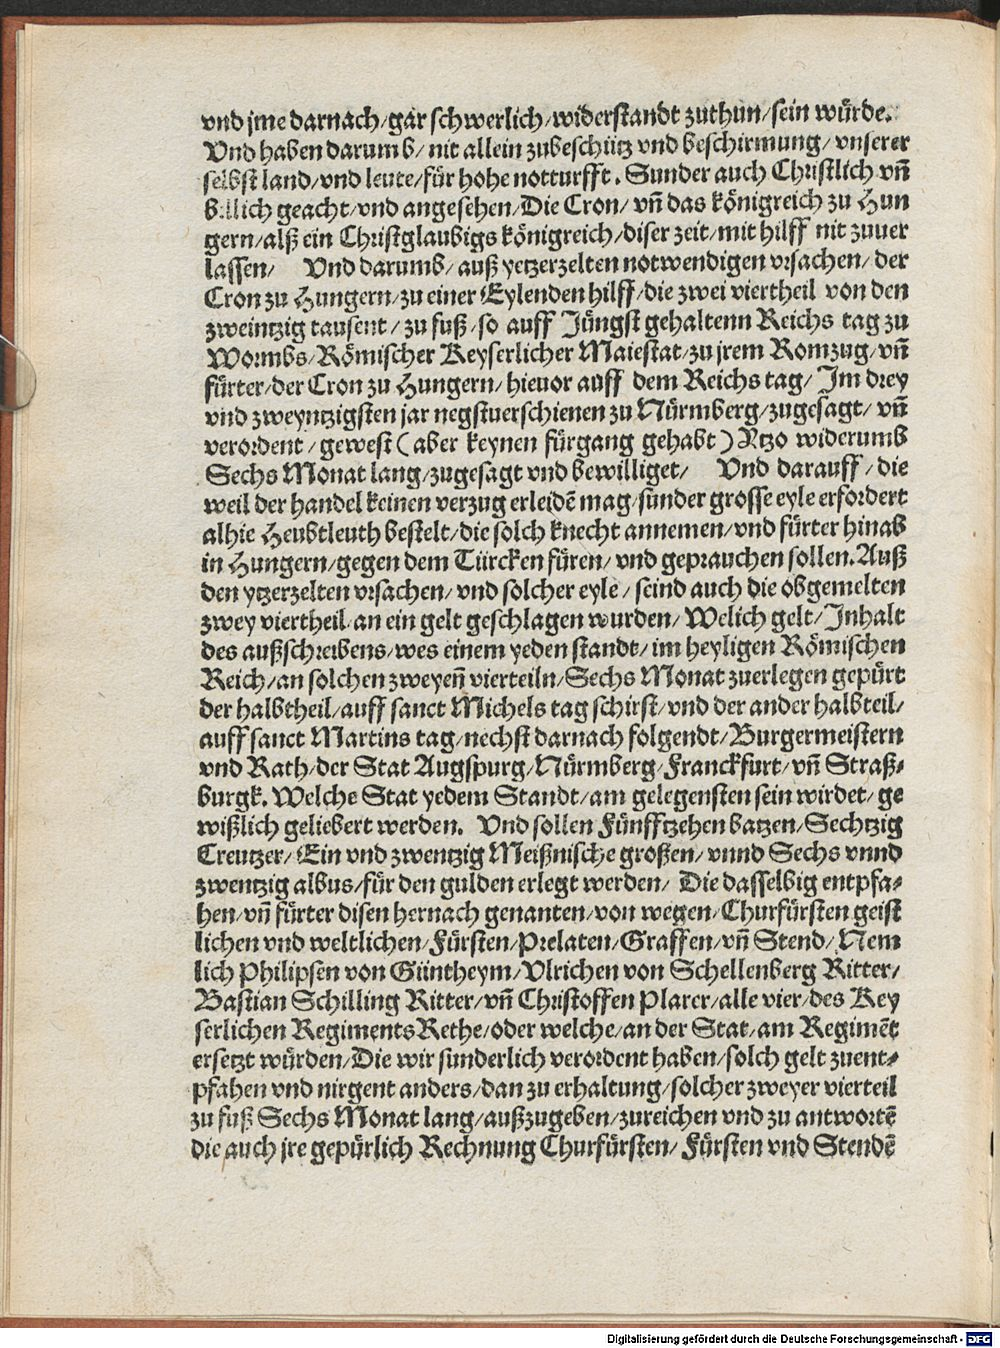 vnd jme darnach/gar schwerlich/widerstandt zuthun/sein würde.
Vnd haben darumb/ nit allein zubeschütz vnd beschirmung/ vnserer
selbst land/vnd leute/für hohe notturfft. Sunder auch Christlich vñ
billich geacht/vnd angesehen/Die Cron/ vñ das königreich zu Hun
gern/alß ein Christglaubigs königreich/diser zeit/mit hilff nit zuuer
lassen/ Vnd darumb/ auß yetzerzelten notwendigen vrsachen/ der
Cron zu Hungern/zu einer Eylenden hilff/die zwei viertheil von den
zweintzig tausent/ zu fuß/so auff Jüngst gehaltenn Reichs tag zu
Wormbs/Römischer Keyserlicher Maiestat/zu jrem Romzug/vñ
fürter/der Cron zu Hungern/hieuor auff dem Reichs tag/ Im drey
vnd zweyntzigsten jar negstuerschienen zu Nürmberg/zugesagt/ vñ
verordent/ gewest (aber keynen fürgang gehabt) Ytzo widerumb
Sechs Monat lang/zugesagt vnd bewilliget/ Vnd darauff/ die
weil der handel keinen verzug erleidē mag/sunder grosse eyle erfordert
alhie Heubtleuth bestelt/die solch knecht annemen/vnd fürter hinab
in Hungern/gegen dem Türcken füren/ vnd geprauchen sollen. Auß
den ytzerzelten vrsachen/ vnd solcher eyle/ seind auch die obgemelten
zwey viertheil an ein gelt geschlagen wurden/ Welich gelt/ Inhalt
des außschreibens/wes einem yeden standt/ im heyligen Römischen
Reich/an solchen zweyeñ vierteiln/Sechs Monat zuerlegen gepürt
der halbtheil/auff sanct Michels tag schirst/vnd der ander halbteil/
auff sanct Martins tag/nechst darnach folgendt/Burgermeistern
vnd Rath/der Stat Augspurg/Nürmberg/Franckfurt/vñ Straß-
burgk. Welche Stat yedem Standt/am gelegensten sein wirdet/ ge
wißlich geliebert werden. Vnd sollen Fünfftzehen batzen/Sechtzig
Creutzer/ Ein vnd zwentzig Meißnische großen/ vnnd Sechs vnnd
zwentzig albus/für den gulden erlegt werden/ Die dasselbig entpfa-
hen/vñ fürter disen hernach genanten/von wegen/Churfürsten geist
lichen vnd weltlichen/Fürsten/Prelaten/Graffen/vñ Stend/ Nem
lich Philipsen von Güntheym/Vlrichen von Schellenberg Ritter/
Bastian Schilling Ritter/vñ Christoffen Plarer/alle vier/des Key
serlichen Regiments Rethe/oder welche/an der Stat/am Regimēt
ersetzt würden/Die wir sunderlich verordent haben/solch gelt zuent-
pfahen vnd nirgent anders/dan zu erhaltung/solcher zweyer vierteil
zu fuß Sechs Monat lang/außzugeben/zureichen vnd zu antwortē
die auch jre gepürlich Rechnung Churfürsten/ Fürsten vnd Stendē
Digitalisierung gefördert durch die Deutsche Forschungsgemeinschaft - DFG